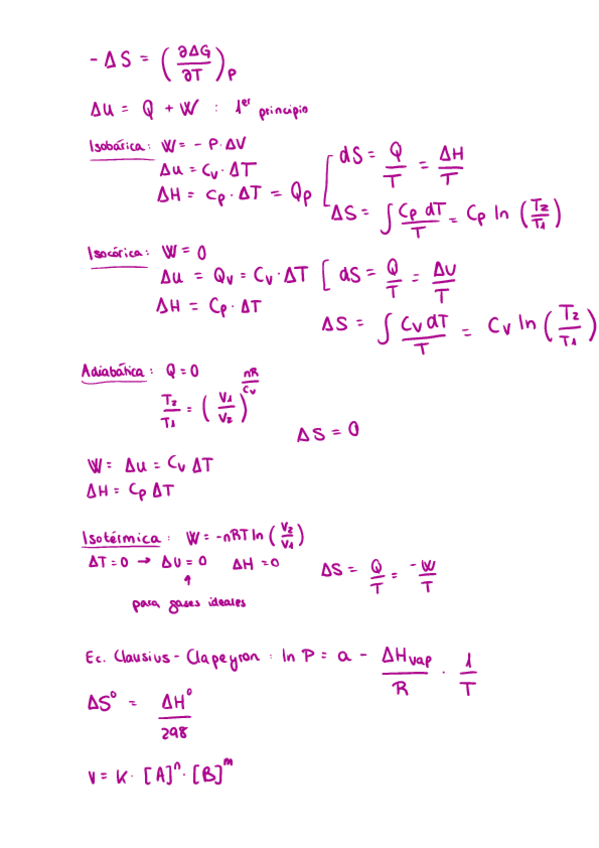 -ΔS = (∂ΔG/∂T)p
Δu = Q + W : 1er principio
Isobárica: W = - P·ΔV
Δu = Cv·ΔT
ΔH = cp·ΔT = Qp
[ dS = Q/T = ΔH/T
ΔS = ∫ Cp dT/T = Cp ln (T2/T1)
Isocórica: W = 0
Δu = Qv = Cv·ΔT [ dS = Q/T = ΔU/T
ΔH = Cp·ΔT
ΔS = ∫ Cv dT/T = Cv ln (T2/T1)
Adiabática: Q = 0
T2/T1 = (V1/V2)^nR/Cv
ΔS = 0
W = Δu = Cv ΔT
ΔH = Cp ΔT
Isotérmica: W = -nRT ln (V2/V1)
ΔT = 0 → ΔU = 0 ΔH = 0
ΔS = Q/T = -W/T
↑
para gases ideales
Ec. Clausius - Clapeyron: ln P = a - ΔHvap/R · 1/T
ΔS° = ΔH°/298
v = K·[A]ⁿ·[B]ᵐ